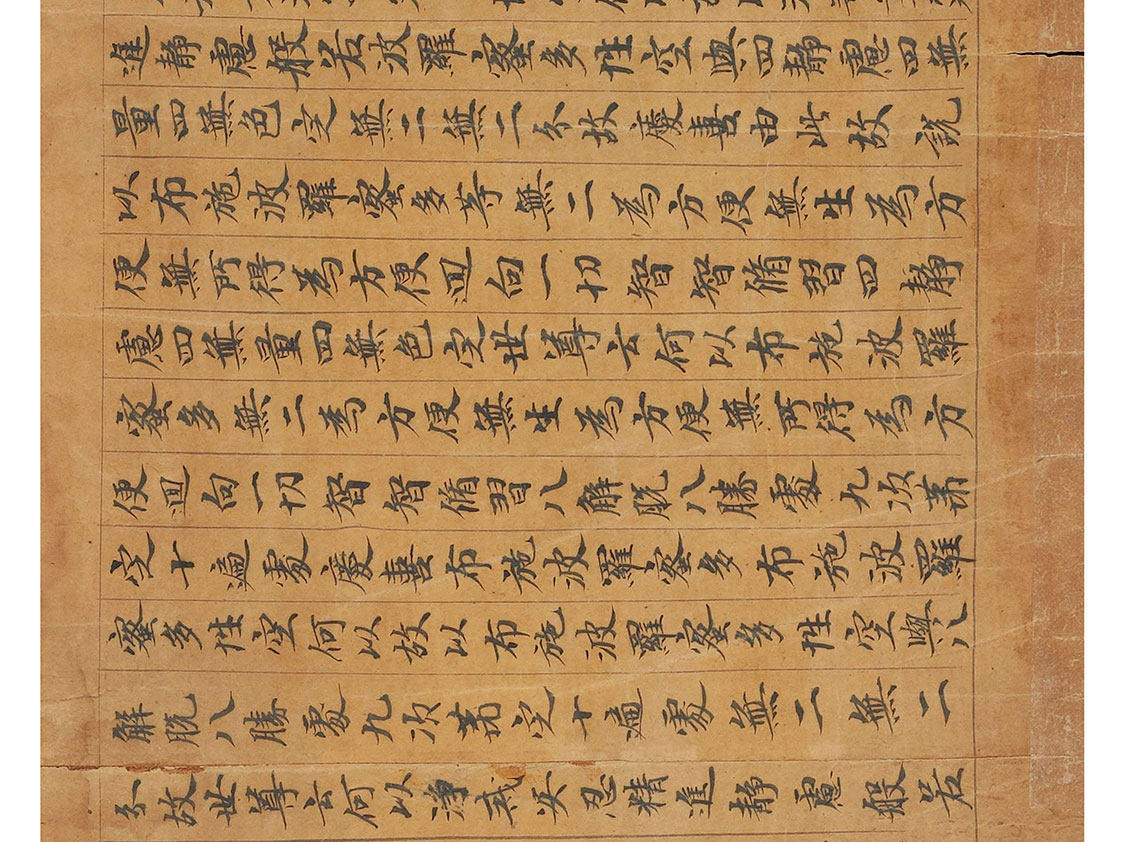 進靜慮般若波羅蜜多性空與四靜慮四無
量四無色定無二無二分故慶喜由此故說
以布施波羅蜜多等無二為方便無生為方
便無所得為方便迴向一切智智脩習四靜
慮四無量四無色定世尊云何以布施波羅
蜜多無二為方便無生為方便無所得為方
便迴向一切智智脩習八解脫八勝處九次第
定十遍處慶喜布施波羅蜜多布施波羅
蜜多性空何以故以布施波羅蜜多性空與八
解脫八勝處九次第定十遍處無二無二
分故世尊云何以淨戒安忍精進靜慮般若